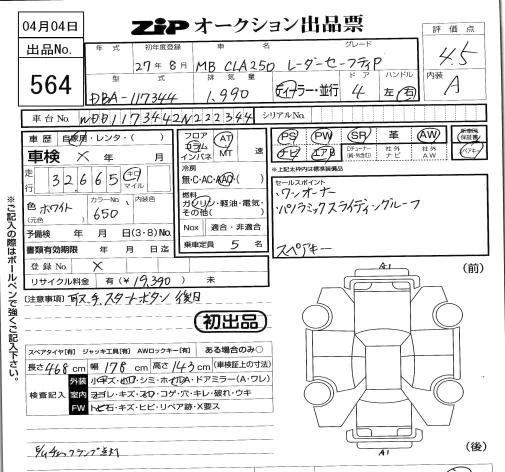 04月04日
ZIP オークション出品票
評価点
4.5
内装
A
出品No.
564
年式
初年度登録
車名
グレード
27年8月
MB CLA250 レーダーセーフティP
型式
排気量
ドア
ハンドル
DBA-117344
1,990
ディーラー・並行
4
左・右
車台No.
WDD1173442N222344
シリアルNo.
車歴
自家用・レンタ・( )
車検 × 年 月
走行
32665
キロ
マイル
色
(元色)
ホワイト
カラーNo.
650
内装色
予備検 年 月 日(3・8)No.
書類有効期限 年 月 日迄
登録No. ×
リサイクル料金 有(¥19,390) 未
フロア
コラム
インパネ
AT
MT
速
冷房
無・C・AC・AAC・( )
燃料
ガソリン・軽油・電気・
その他( )
Nox 適合・非適合
乗車定員 5 名
PS
PW
SR
革
AW
新車時保証書
ナビ
エアB
社外ナビ
社外AW
スペアキー
※上記太枠内は標準装備品
セールスポイント
ワンオーナー
パノラミックスライディングルーフ
スペアキー
[注意事項]
スタートボタン 後日
初出品
スペアタイヤ[有] ジャッキ工具[有] AWロックキー[有] ある場合のみ○
長さ 468 cm 幅 178 cm 高さ 143 cm (車検証上の寸法)
検査記入
外装 小キズ・凹・シミ・ホイルA・ドアミラー(A・ワレ)
室内 ヨゴレ・キズ・スレ・コゲ・穴・キレ・破れ・ウキ
FW トビ石・キズ・ヒビ・リペア跡・X要ス
A1
(前)
A1
(後)
※ご記入の際はボールペンで強くご記入下さい。